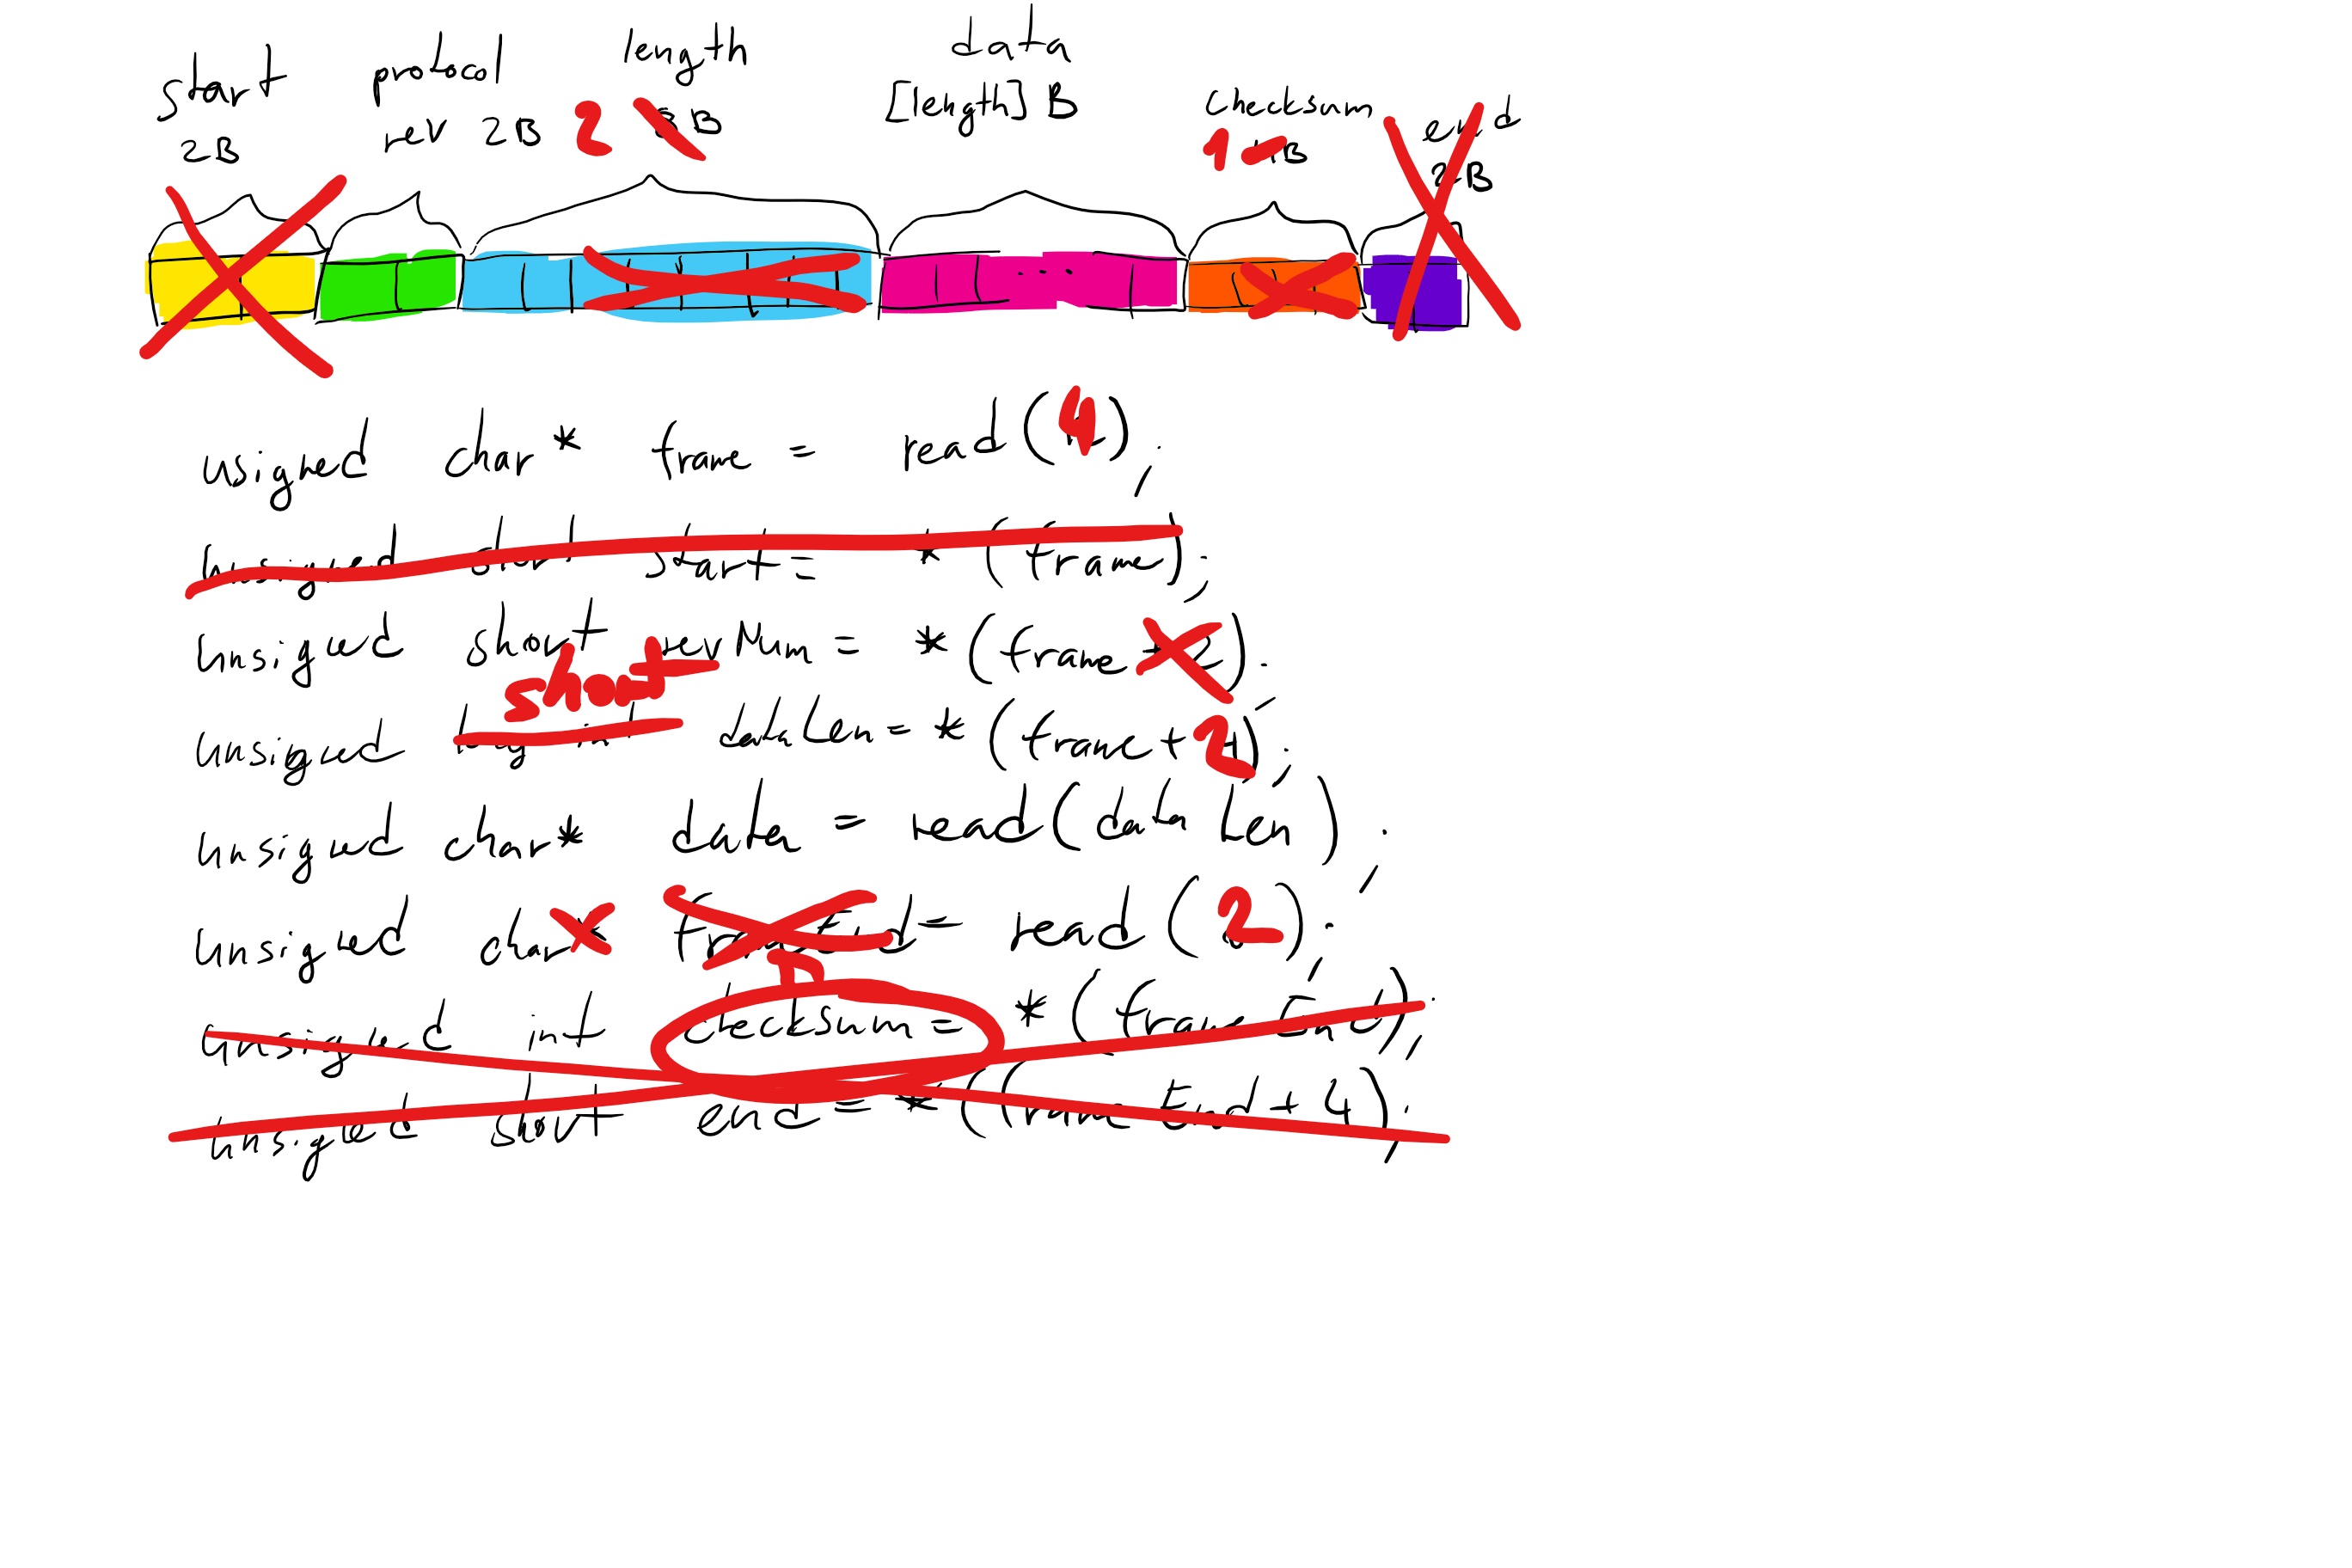 start protocol length data
2B rev 2B 2 8B [length]B checksum end
1 4B 2B
usigned char* frame = read(4);
unsigned short start = *(frame);
unsigned short revNum = *(frame +2);
short
unsigned long int dataLen = *(frame+2);
unsigned char* data = read(dataLen);
unsigned char* frameEnd = read(2);
unsigned int checksum = *(frameEnd);
unsigned short end = *(frameEnd+4);